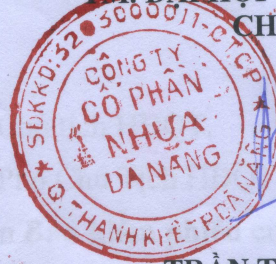 CH
SĐKKD: 32 3000011-CTCP
CÔNG TY
CỔ PHẦN
NHỰA
ĐÀ NẴNG
★ Q. THANH KHÊ - TP ĐÀ NẴNG ★
TRẦN T